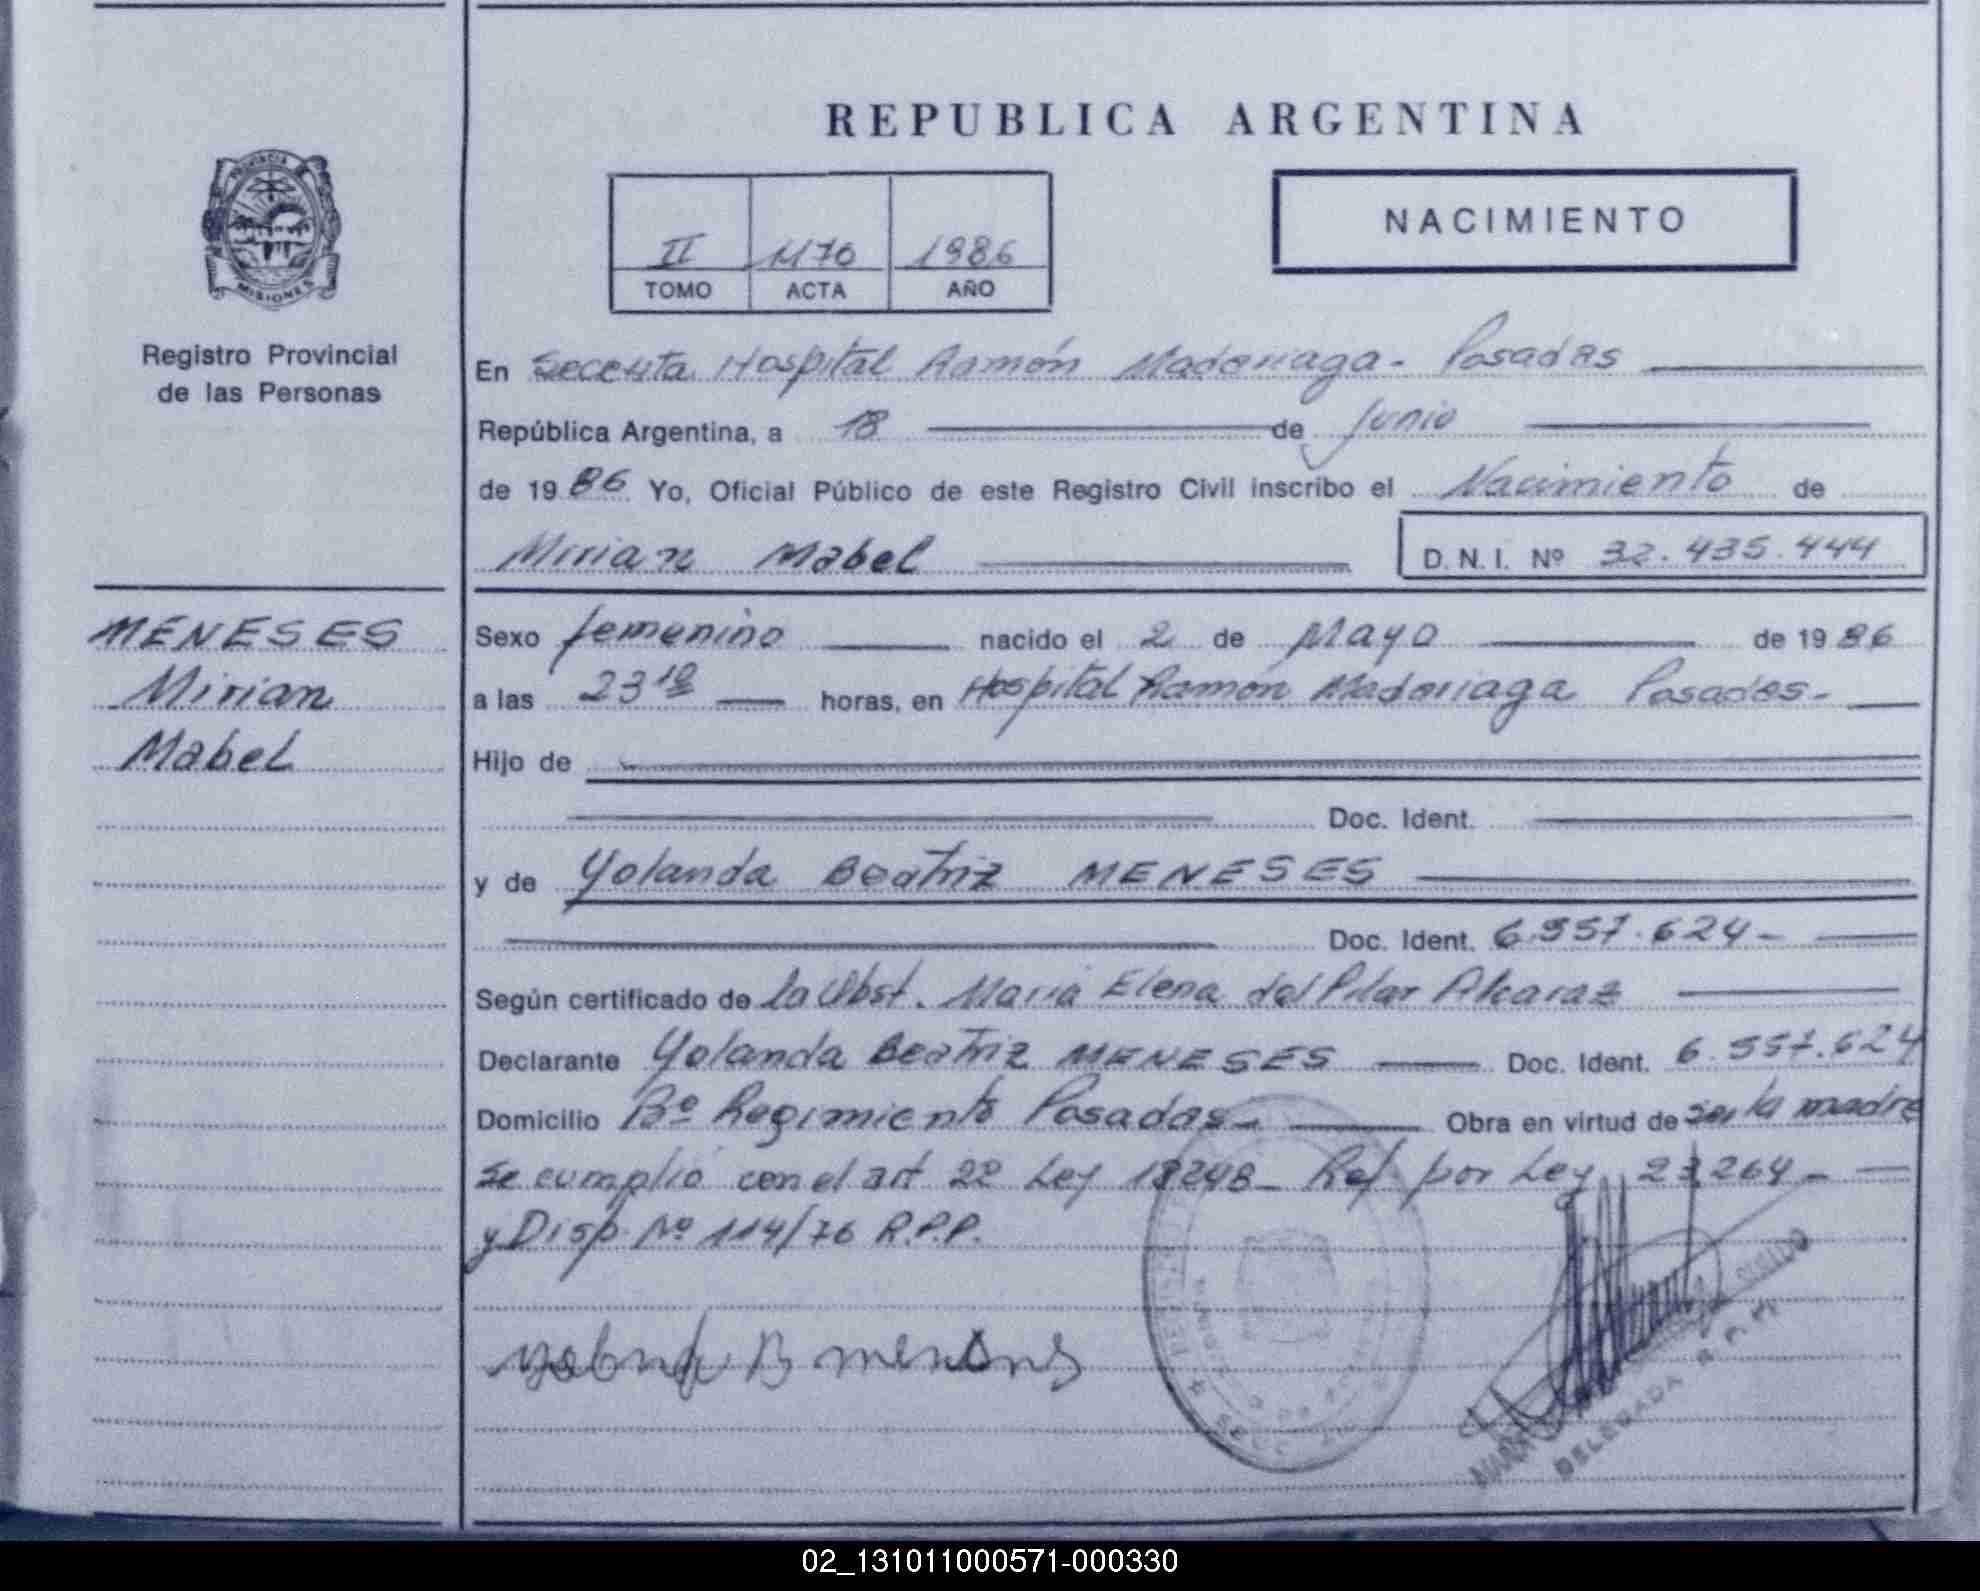 REPUBLICA ARGENTINA
PROVINCIA
MISIONES
Registro Provincial
de las Personas
NACIMIENTO
II 1170 1986
TOMO ACTA AÑO
En Hospital Ramón Madariaga - Posadas
República Argentina, a 18 de Junio
de 1986 Yo, Oficial Público de este Registro Civil inscribo el Nacimiento de
Mirian Mabel D.N.I. Nº 32.435.444
MENESES
Mirian
Mabel
Sexo femenino nacido el 2 de Mayo de 1986
a las 23 10 horas, en Hospital Ramón Madariaga Posadas-
Hijo de
Doc. Ident.
y de Yolanda Beatriz MENESES
Doc. Ident. 6.357.624-
Según certificado de la Obst. María Elena del Pilar Alcaraz
Declarante Yolanda Beatriz MENESES Doc. Ident. 6.357.624
Domicilio Bº Regimiento Posadas- Obra en virtud de ser la madre
Se cumplió con el art 2º Ley 18248- Ref. por Ley 23.264-
y Disp. Nº 114/76 R.P.P.
B
DELEGADA
02_131011000571-000330